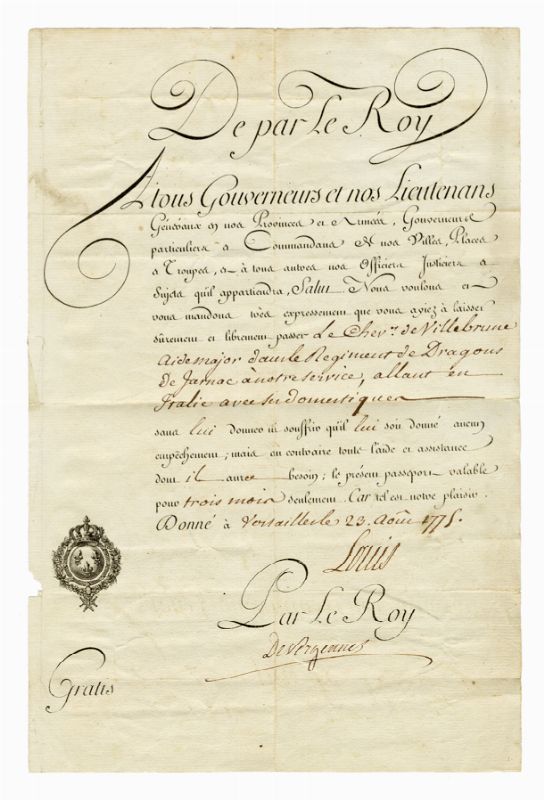 De par Le Roy
A tous Gouverneurs et nos Lieutenans
Généraux en nos Provinces et Armées, Gouverneurs
particuliers et Commandans de nos Villes, Places
et Troupes, et à tous autres nos Officiers Justiciers et
Sujets qu'il appartiendra, Salut. Nous voulons et
vous mandons très expressement que vous ayiez à laisser
sûrement et librement passer Le Chevr. de Villebrune
Aide major dans le Regiment de Dragons
de Jarnac à notre service, allant en
Italie avec ses domestiques
sans lui donner ni souffrir qu'il lui soit donné aucun
empêchement; mais au contraire toute l'aide et assistance
dont il aura besoin; le présent passeport valable
pour trois mois seulement. Car tel est notre plaisir.
Donné à Versailles le 23. Août 1775.
Louis
Par Le Roy
De Vergennes
Gratis